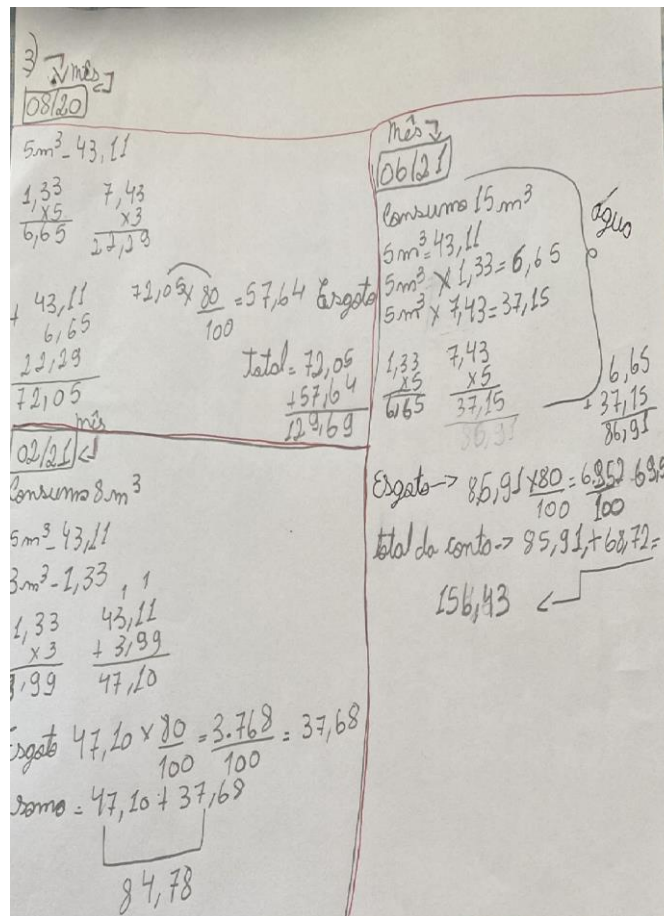 3)
mês
08/20
5m³ - 43,11
1,33 7,43
x5 x3
6,65 22,29
+ 43,11
6,65
22,29
72,05
72,05 x 80/100 = 57,64 Esgoto
Total = 72,05
+57,64
129,69
mês
02/21
Consumo 8m³
5m³ - 43,11
3m³ - 1,33
1 1
1,33 43,11
x3 + 3,99
3,99 47,10
Esgoto 47,10 x 80/100 = 3.768/100 = 37,68
soma = 47,10 + 37,68
84,78
Mês
06/21
Consumo 15m³
água
5m³ = 43,11
5m³ x 1,33 = 6,65
5m³ x 7,43 = 37,15
1,33 7,43
x5 x5
6,65 37,15
86,91
6,65
+ 37,15
86,91
Esgoto -> 85,91 x 80/100 = /100
total da conta -> 85,91, + 68,72 =
156,43